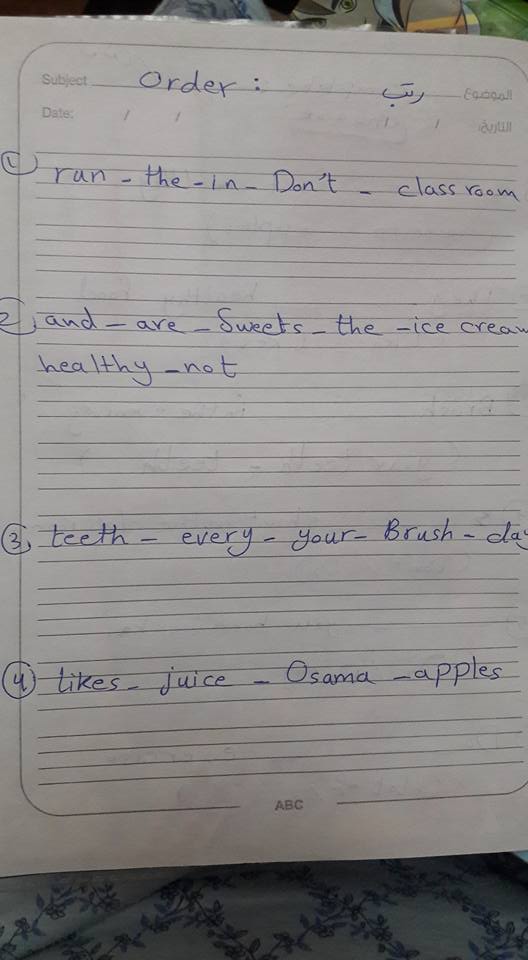 Subject Order : رتب الموضوع
Date: / / / / التاريخ
1 run - the - in - Don't - class room
2, and - are - Sweets - the - ice cream
healthy - not
3, teeth - every - your - Brush - day
4 likes - juice - Osama - apples
ABC